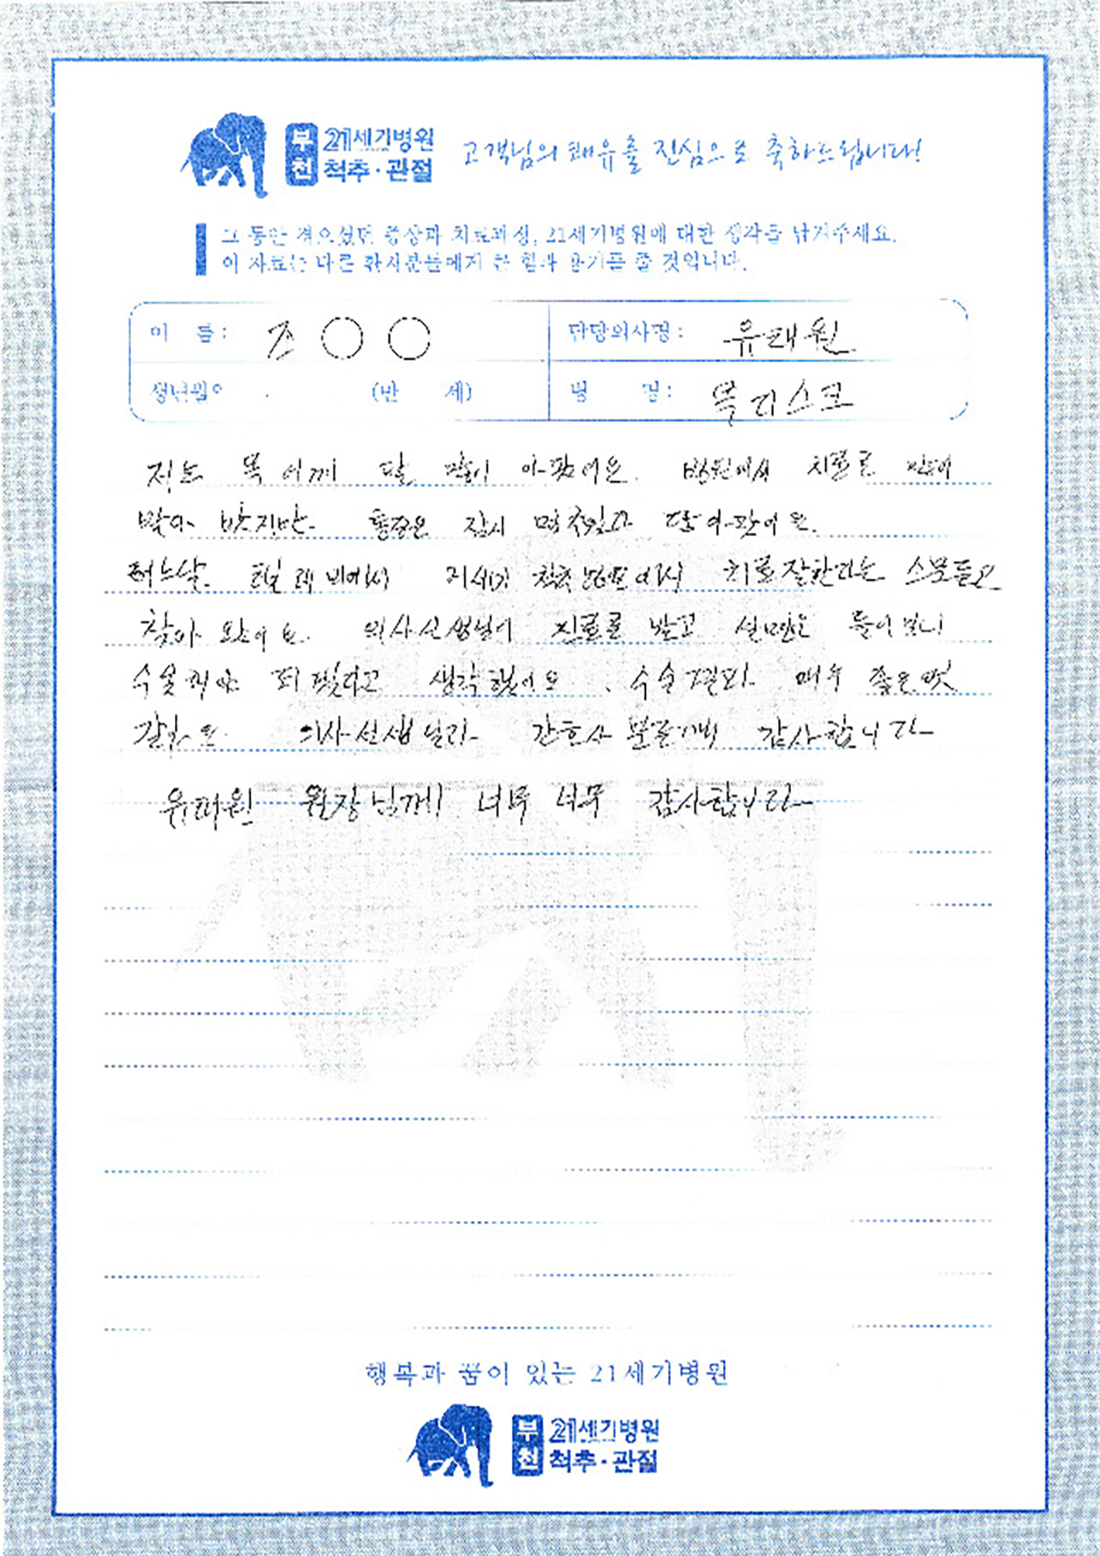 부천 21세기병원
척추·관절
고객님의 쾌유를 진심으로 축하드립니다!
그 동안 겪으셨던 증상과 치료과정, 21세기병원에 대한 생각을 남겨주세요.
이 자료는 다른 환자분들에게 큰 힘과 용기를 줄 것입니다.
이 름 : 조○○
담당의사명 : 유태원
생년월일 (만 세)
병 명 : 목디스크
저는 목 어깨 팔 많이 아팠어요. 병원에서 치료를
받지만 통증은 잠시 또 아팠어요.
어느날 텔레비에서 21세기 척추병원에서 치료 잘한다는 소문듣고
찾아 왔어요. 의사선생님이 진료를 받고 설명을 들어보니
수술해야 되겠다고 생각했어요. 수술결과 매우 좋은것
같아요 의사선생님과 간호사 분들께 감사합니다
유태원 원장님께 너무 너무 감사합니다
행복과 꿈이 있는 21세기병원
부천 21세기병원
척추·관절